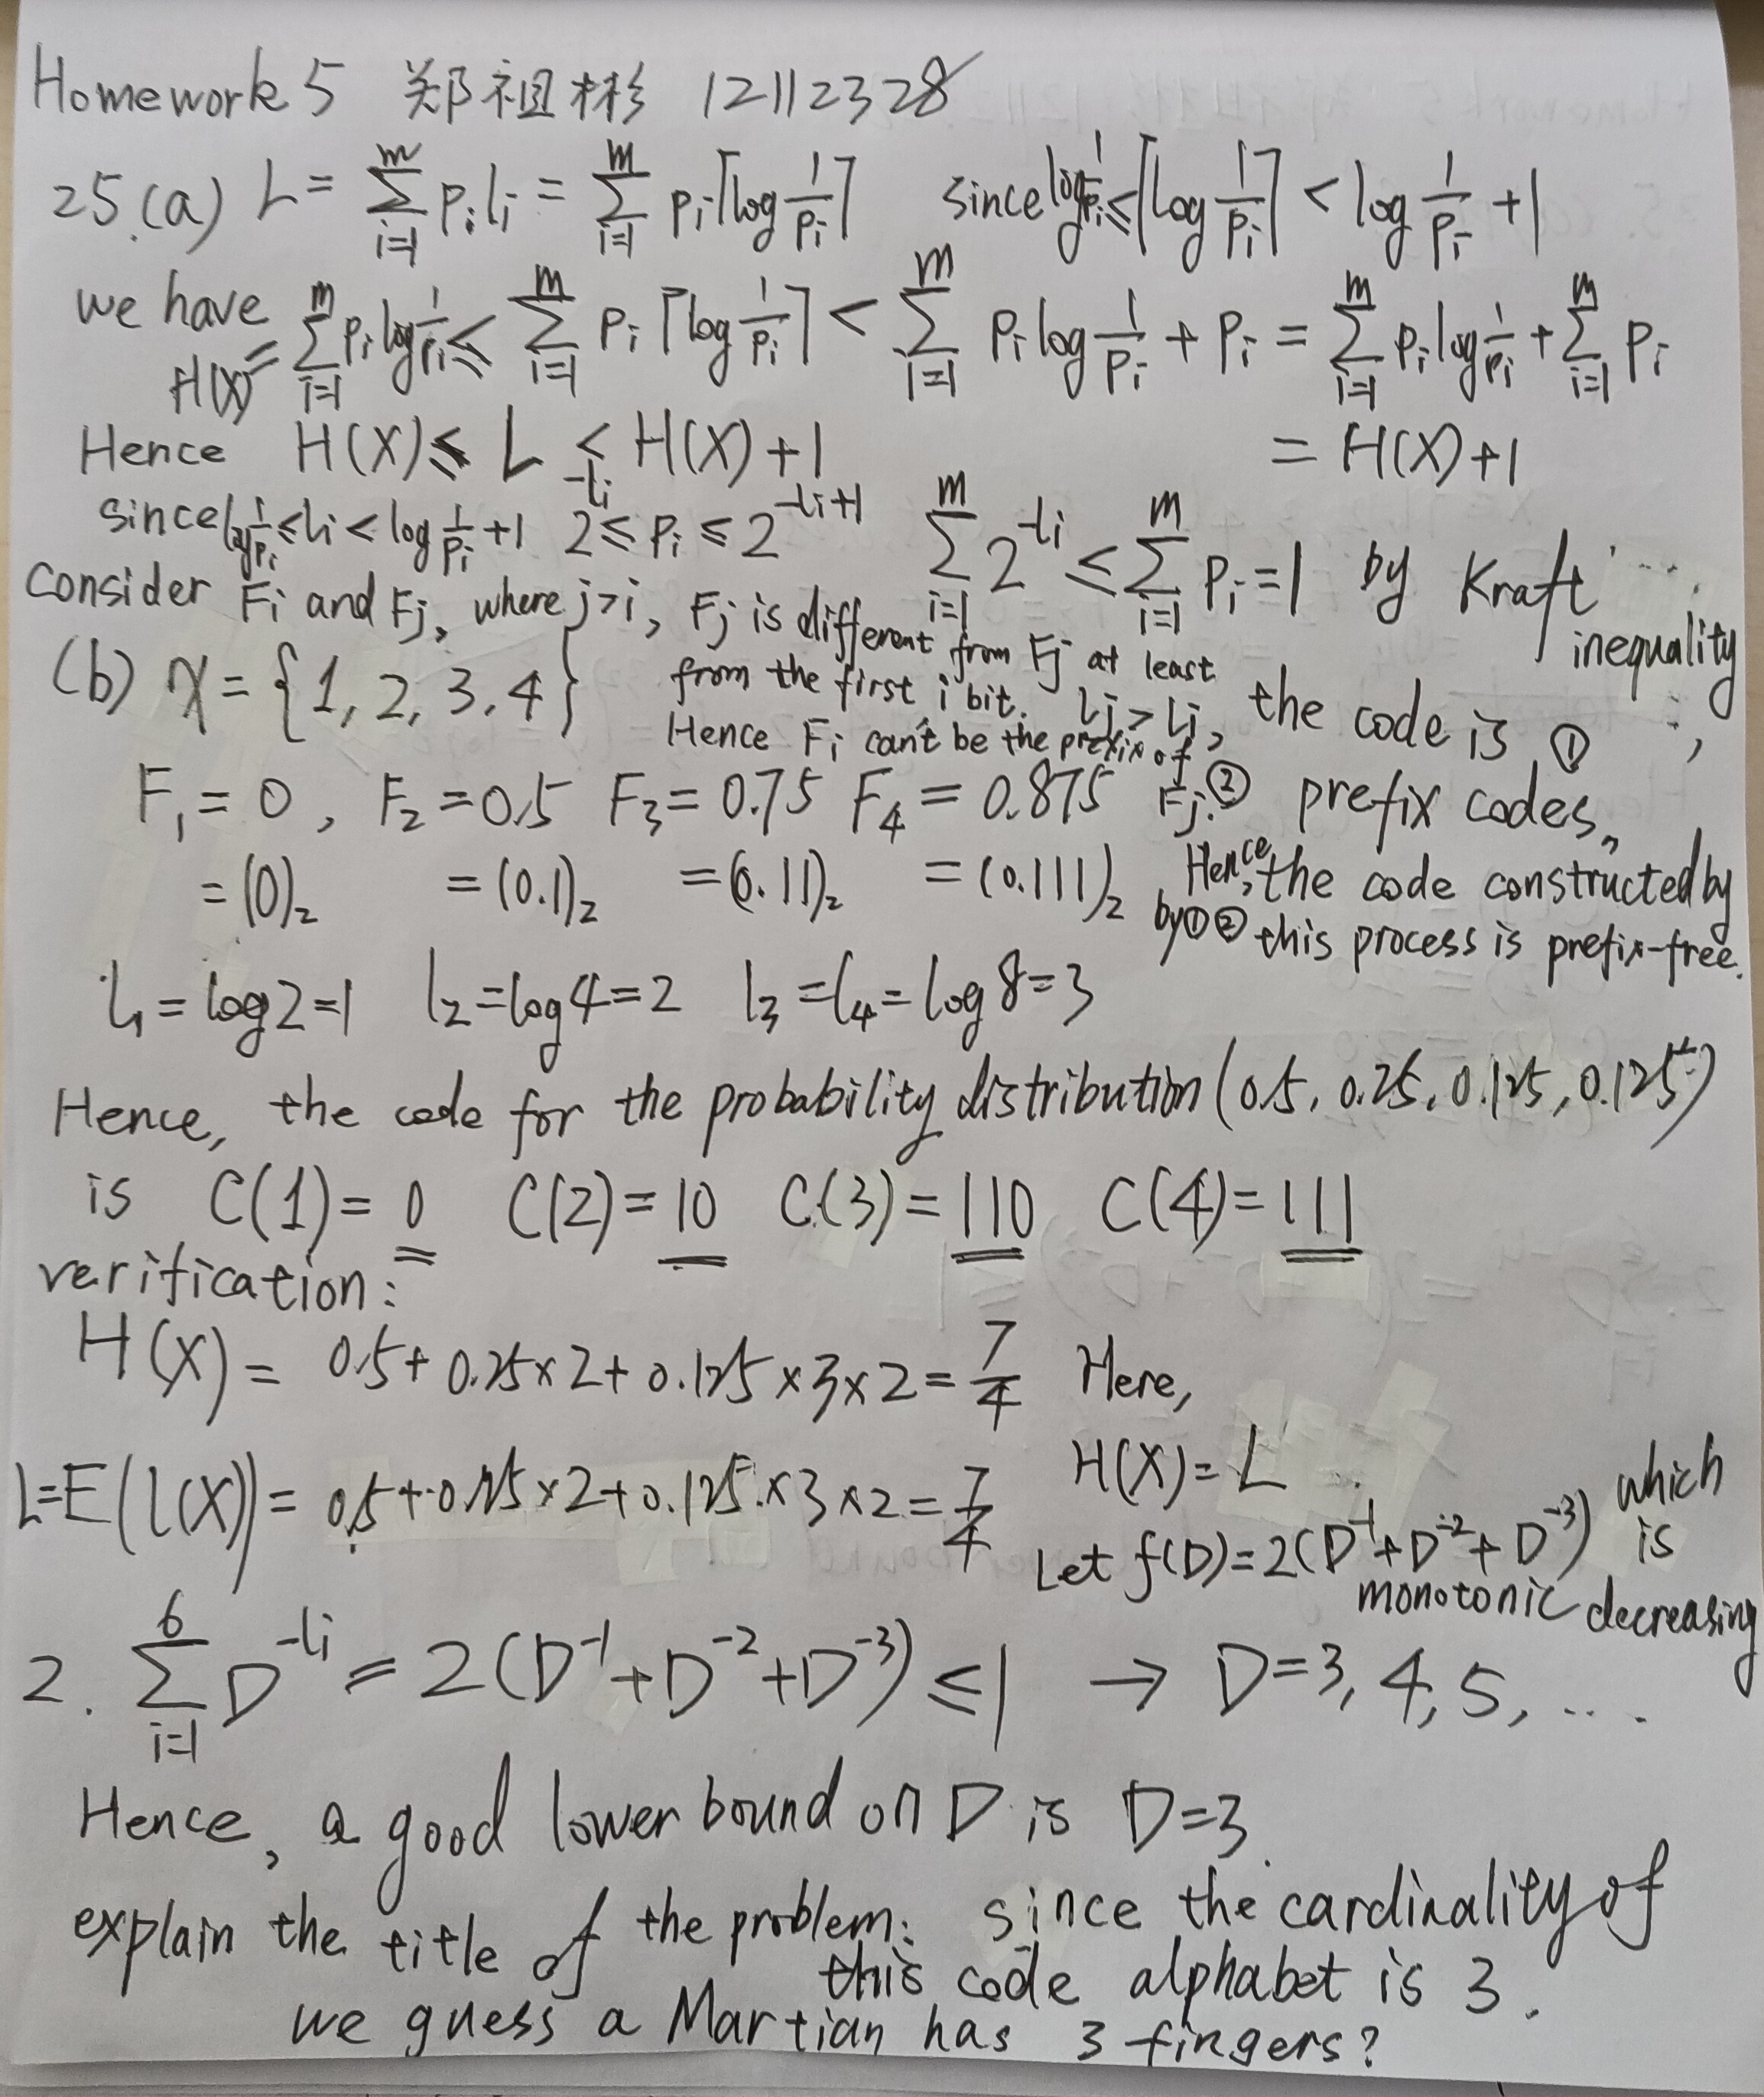 Homework 5 郑祖彬 12112328
25.(a) L = ∑_{i=1}^{m} p_i l_i = ∑_{i=1}^{m} p_i ⌈log 1/p_i⌉ since log 1/p_i ≤ ⌈log 1/p_i⌉ < log 1/p_i + 1
we have H(X) = ∑_{i=1}^{m} p_i log 1/p_i ≤ ∑_{i=1}^{m} p_i ⌈log 1/p_i⌉ < ∑_{i=1}^{m} p_i log 1/p_i + p_i = ∑_{i=1}^{m} p_i log 1/p_i + ∑_{i=1}^{m} p_i
= H(X)+1
Hence H(X) ≤ L < H(X)+1
since log 1/p_i ≤ l_i < log 1/p_i + 1 2^{-l_i} ≤ p_i ≤ 2^{-l_i+1} ∑_{i=1}^{m} 2^{-l_i} ≤ ∑_{i=1}^{m} p_i = 1 by Kraft
inequality,
the code is ①
prefix codes.
consider F_i and F_j, where j>i, F_j is different from F_j at least
from the first i bit. l_j > l_i,
Hence F_i can't be the prefix of
F_j. ②
Hence, the code constructed by
by ① ② this process is prefix-free.
(b) X = {1, 2, 3, 4}
F_1 = 0, F_2 = 0.5 F_3 = 0.75 F_4 = 0.875
= (0)_2 = (0.1)_2 = (0.11)_2 = (0.111)_2
l_1 = log 2 = 1 l_2 = log 4 = 2 l_3 = l_4 = log 8 = 3
Hence, the code for the probability distribution (0.5, 0.25, 0.125, 0.125)
is C(1) = 0 C(2) = 10 C(3) = 110 C(4) = 111
verification:
H(X) = 0.5 + 0.25×2 + 0.125×3×2 = 7/4 Here,
H(X) = L
L=E(l(X)) = 0.5 + 0.25×2 + 0.125×3×2 = 7/4
Let f(D) = 2(D^{-1} + D^{-2} + D^{-3}) which
is
monotonic decreasing
2. ∑_{i=1}^{6} D^{-l_i} = 2(D^{-1} + D^{-2} + D^{-3}) ≤ 1 → D = 3, 4, 5, ....
Hence, a good lower bound on D is D=3.
explain the title of the problem: since the cardinality of
this code alphabet is 3.
we guess a Martian has 3 fingers?